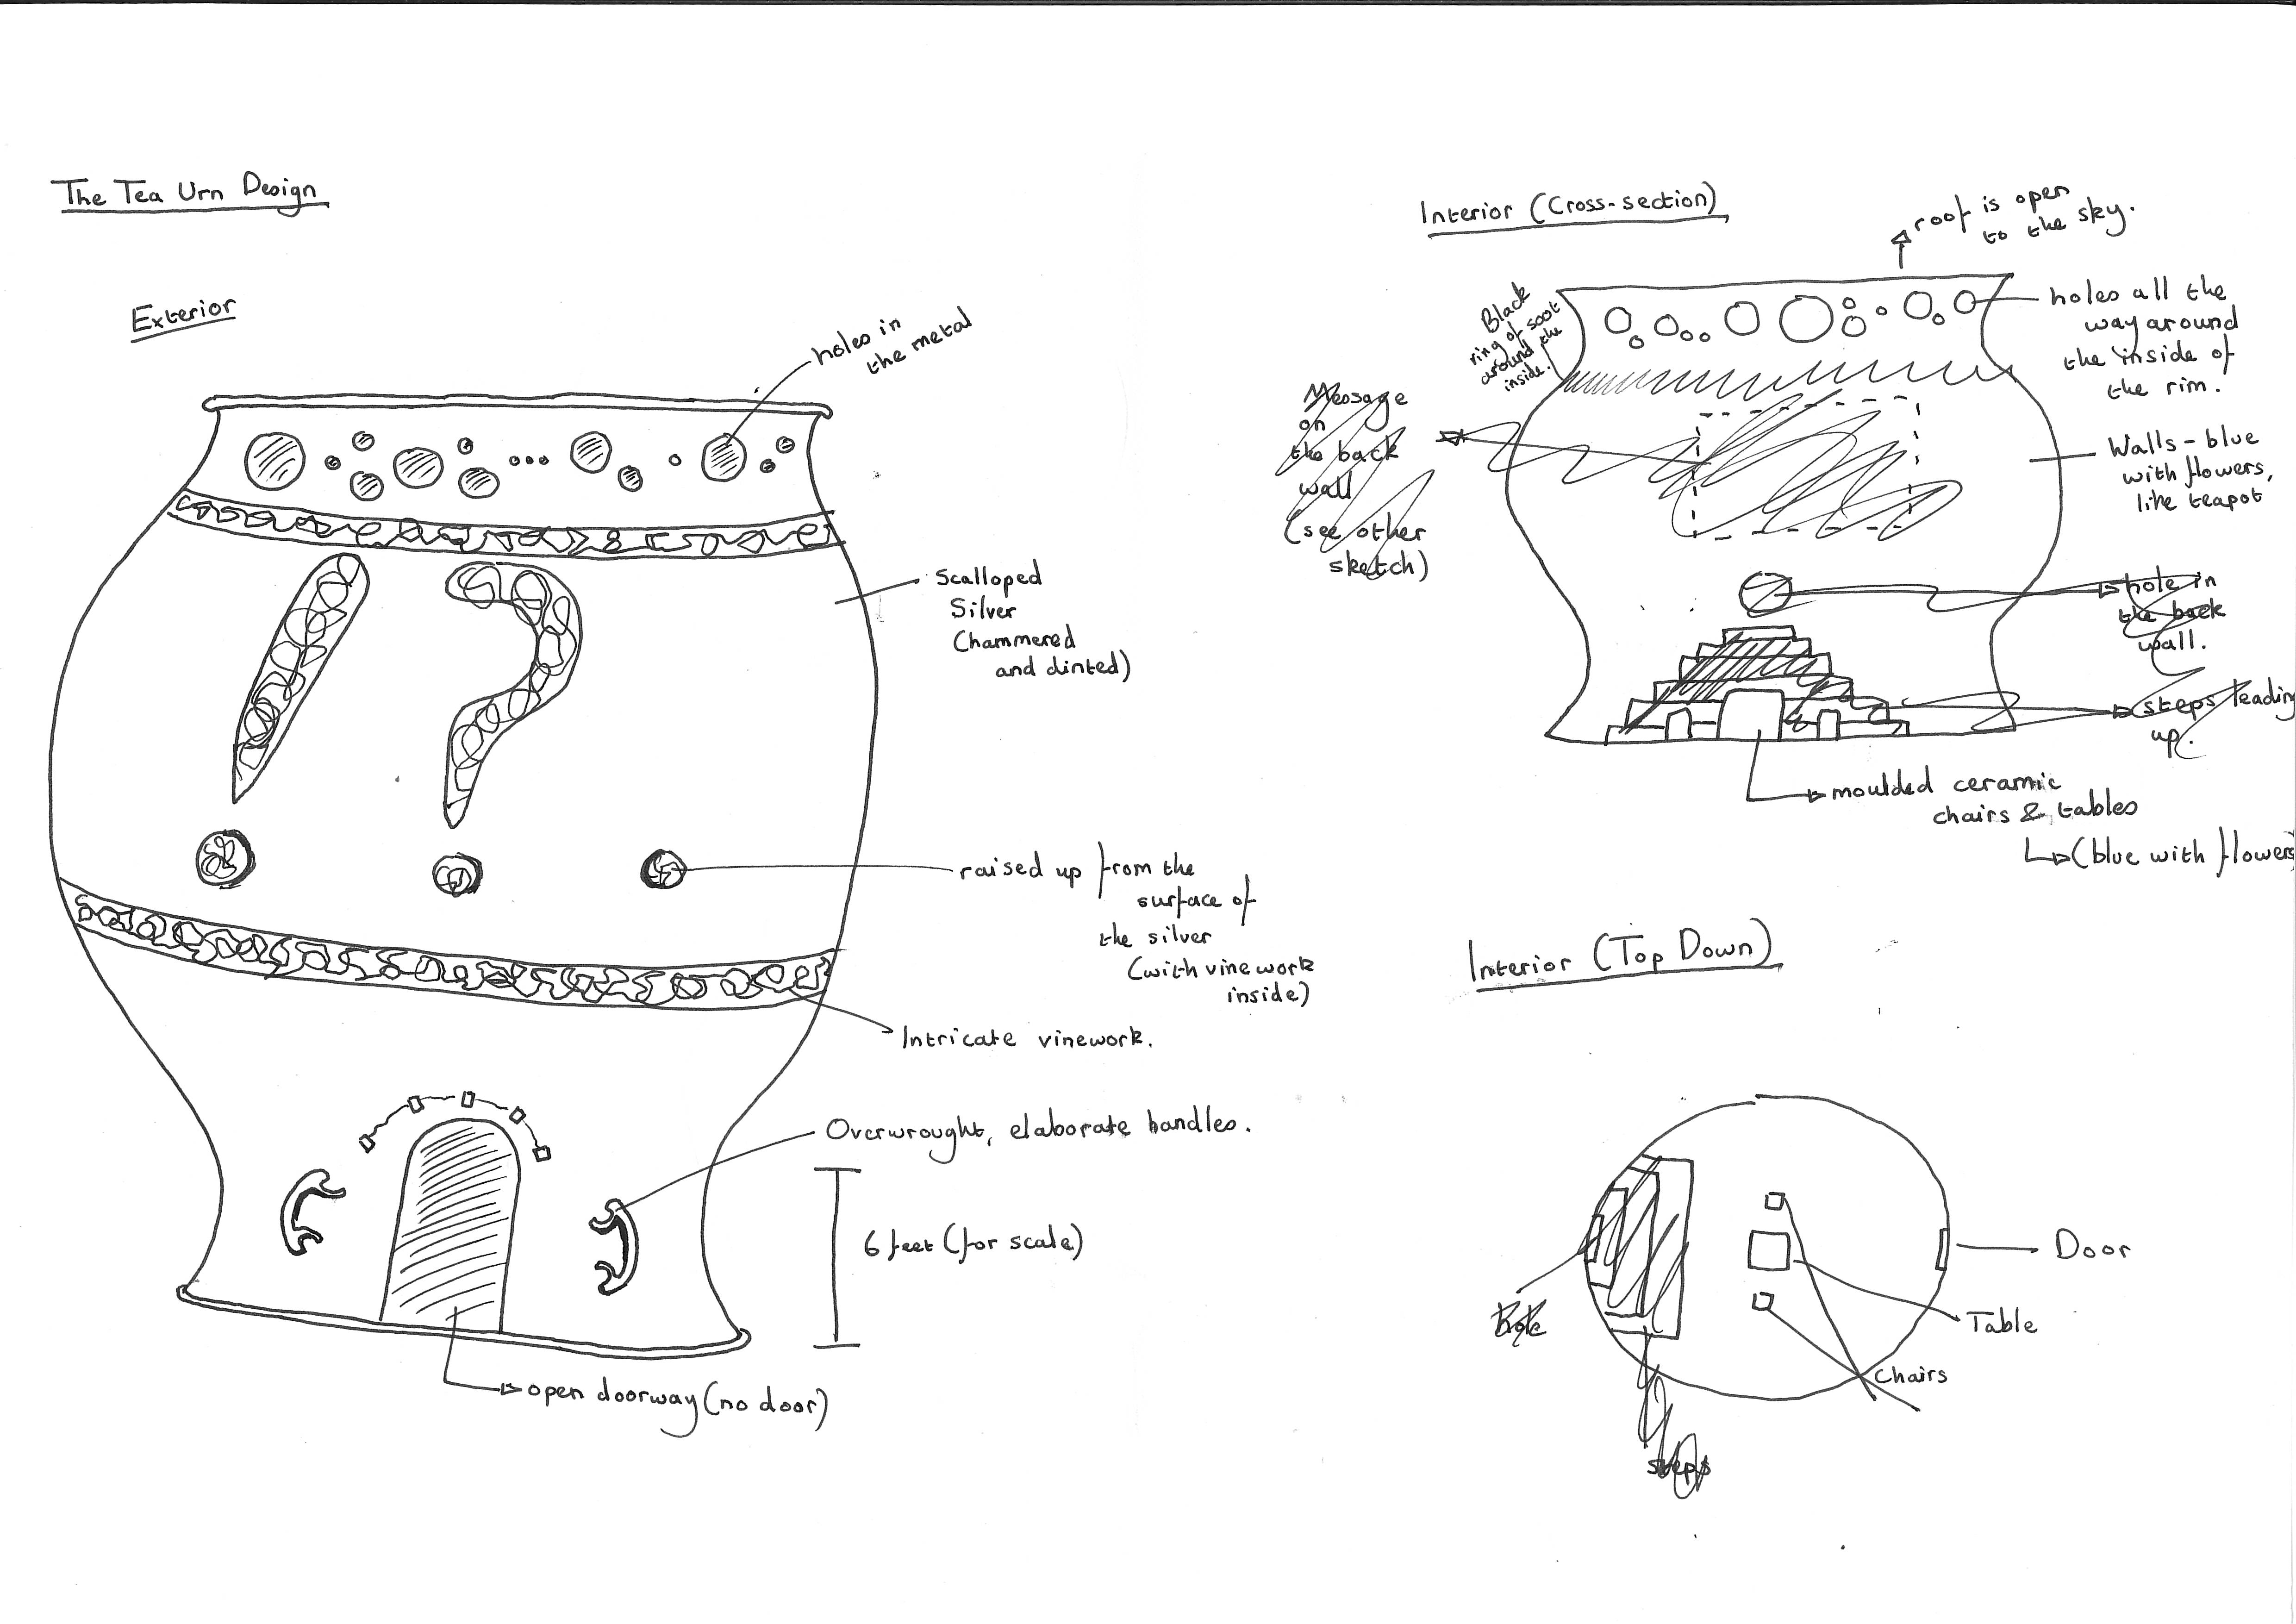 The Tea Urn Design
Exterior
holes in
the metal
Scalloped
Silver
(hammered
and dinted)
raised up from the
surface of
the silver
(with vinework
inside)
Intricate vinework.
Overwrought, elaborate handles.
6 feet (for scale)
open doorway (no door)
Interior (Cross-section)
roof is open
to the sky.
Black
ring of soot
around the
inside.
holes all the
way around
the inside of
the rim.
Message
on
the back
wall
(see other
sketch)
Walls - blue
with flowers,
like teapot
hole in
the back
wall.
steps leading
up.
moulded ceramic
chairs & tables
(blue with flowers
Interior (Top Down)
Door
Table
Chairs
hole
steps